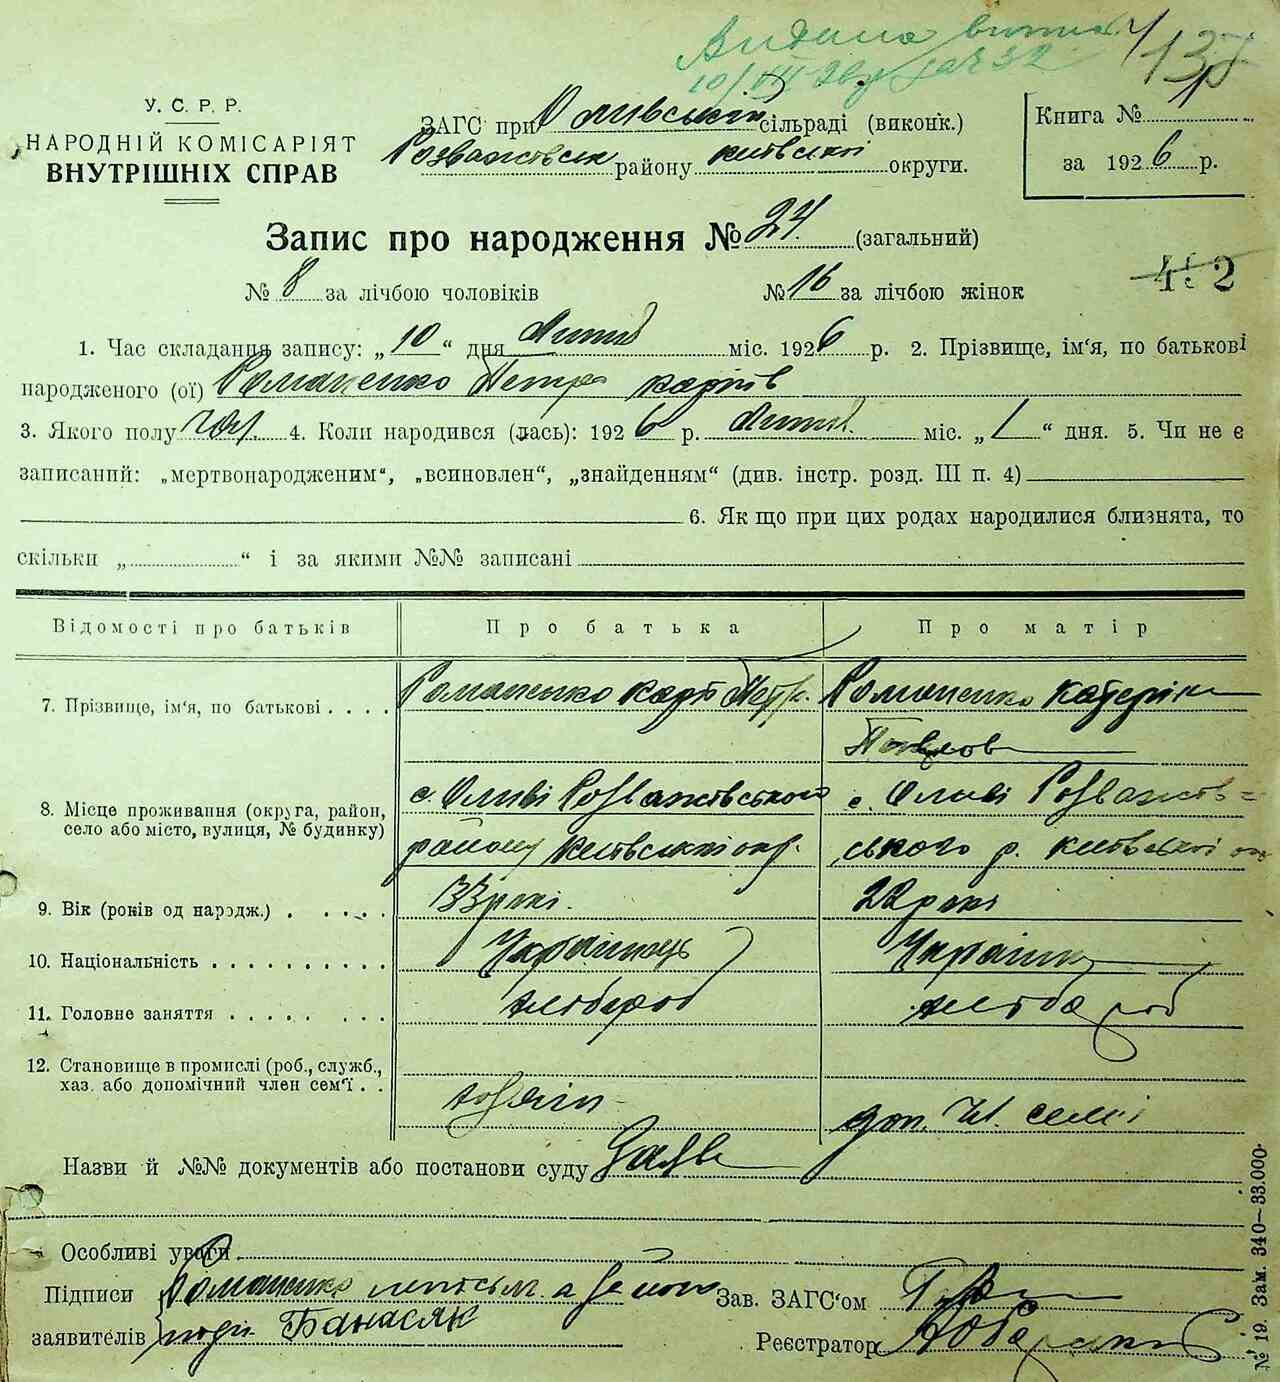 Видана
У. С. Р. Р.
НАРОДНІЙ КОМІСАРІЯТ
ВНУТРІШНІХ СПРАВ
ЗАГС при Оливській сільраді (виконк.)
Розважівськ району Київської округи.
Книга №
за 1926 р.
Запис про народження № 24. (загальний)
№ 8 за лічбою чоловіків № 16 за лічбою жінок
1. Час складання запису: „10“ дня міс. 1926 р. 2. Прізвище, ім‘я, по батькові
народженого (ої) Романенко Петро
3. Якого полу 4. Коли народився (лась): 1926 р. міс. „1“ дня. 5. Чи не є
записаний: „мертвонародженим“, „всиновлен“, „знайденням“ (див. інстр. розд. III п. 4)
6. Як що при цих родах народилися близнята, то
скільки „ “ і за якими №№ записані
Відомості про батьків Про батька Про матір
7. Прізвище, ім‘я, по батькові Романенко Романенко Катерина
Павлов
8. Місце проживання (округа, район, село або місто, вулиця, № будинку) с. Оливі Розважівського с. Оливі Розважів=
району Київської окр. ського р. Київської
9. Вік (років од народж.) 33 рокі. 22 рокі
10. Національність Українець Українк
11. Головне заняття хлібороб хлібороб
12. Становище в промислі (роб., служб., хаз. або допомічний член сем‘ї хозяїн доп. чл. семї
Назви й №№ документів або постанови суду
Особливі уваги
Підписи Романенко а за його
заявителів Банасяк
Зав. ЗАГС‘ом
Реєстратор
№ 19. Зам. 340–33.000